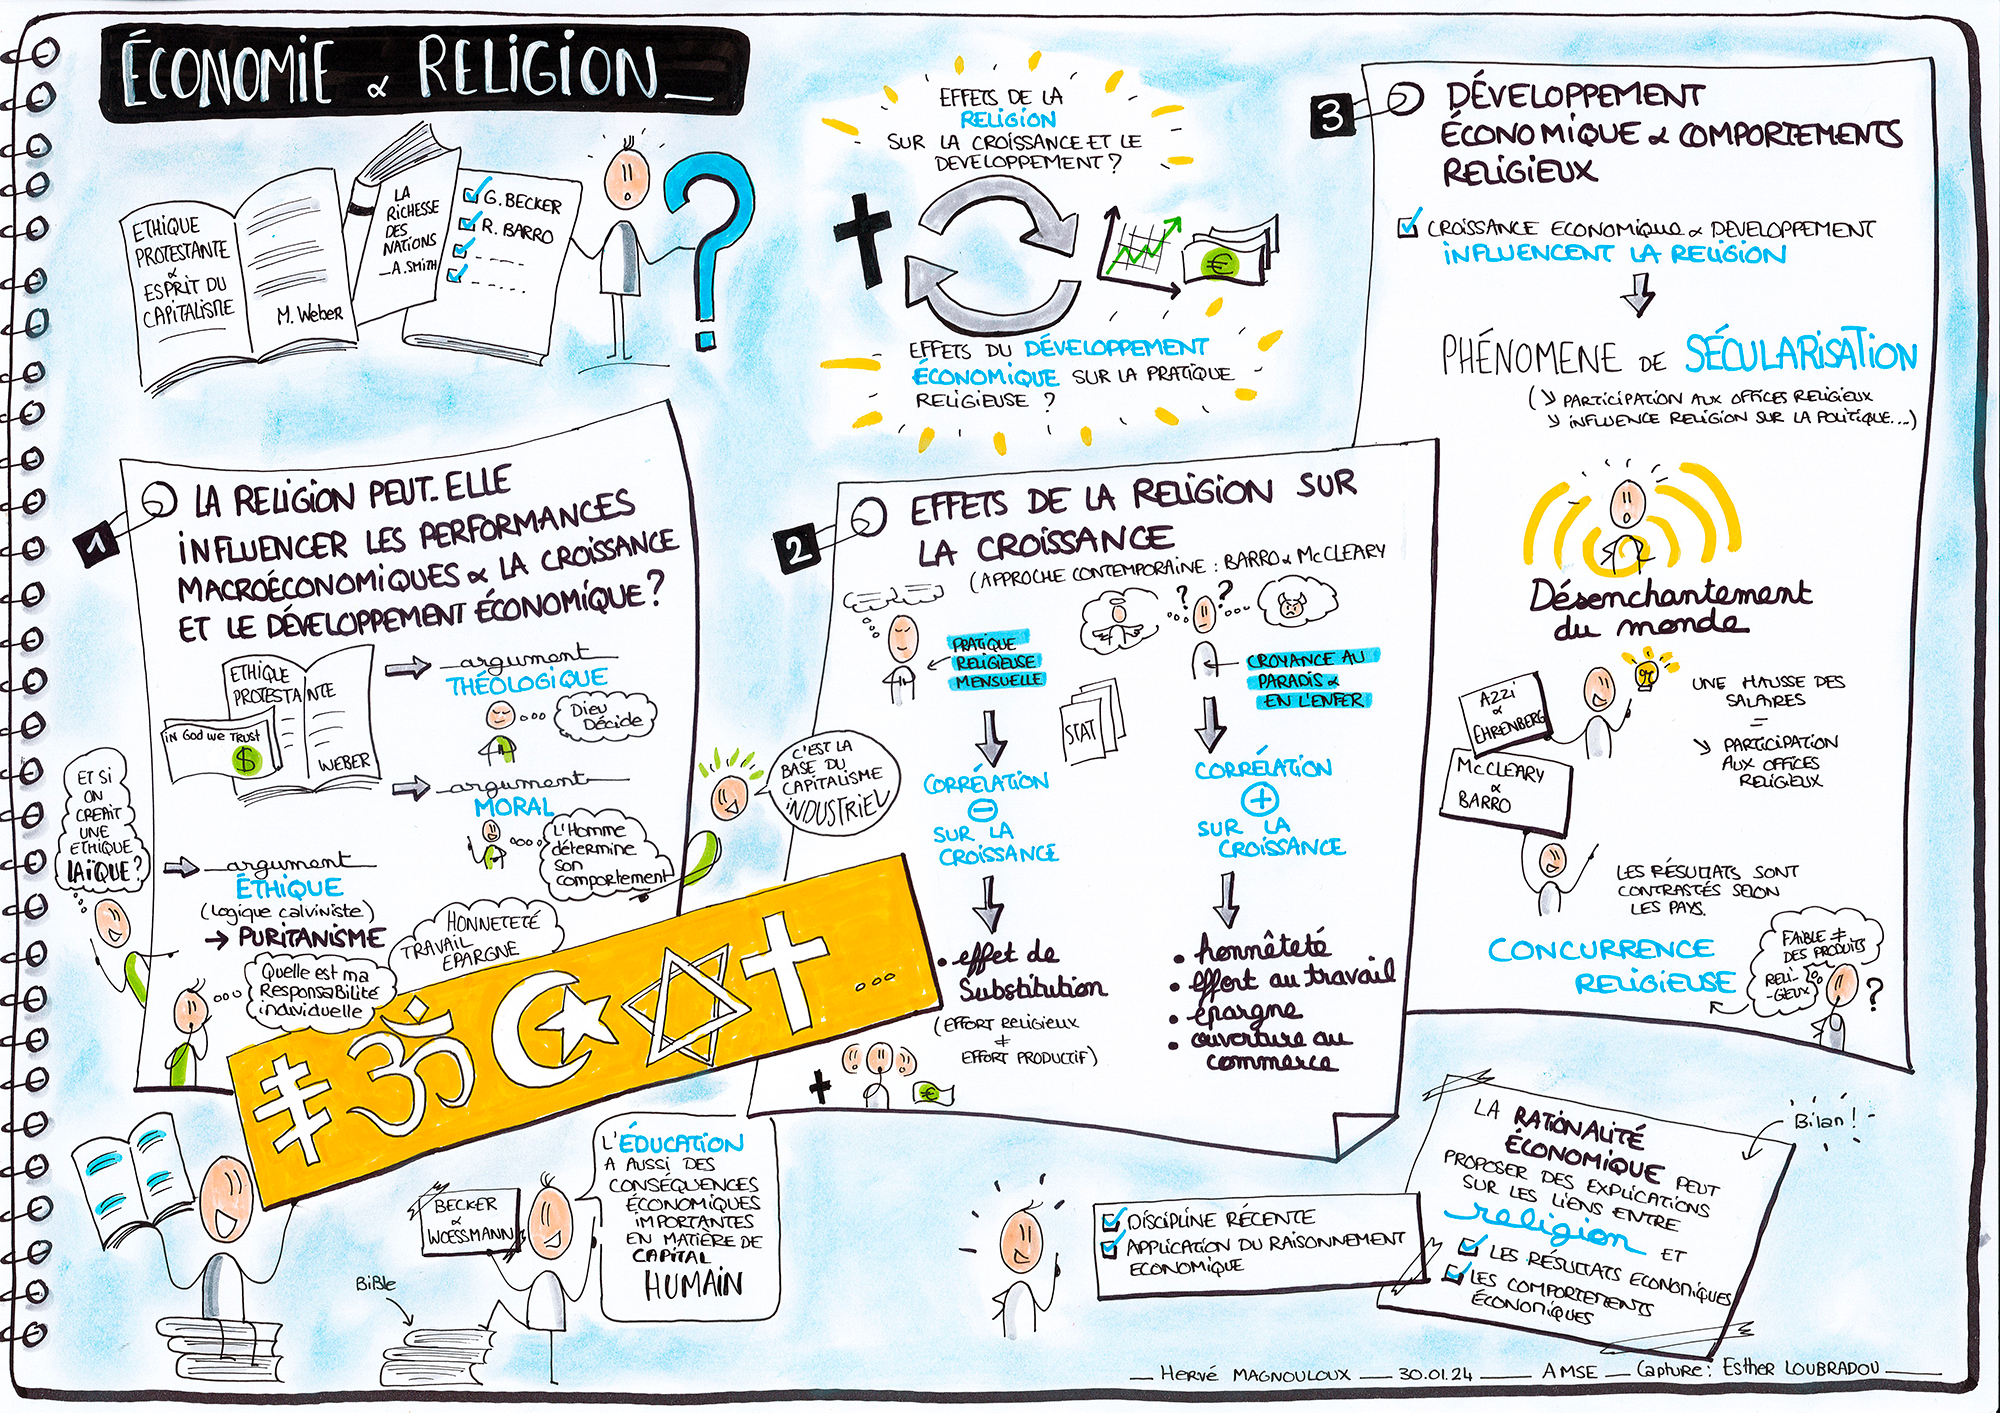 ÉCONOMIE & RELIGION_
ETHIQUE
PROTESTANTE
&
ESPRIT DU
CAPITALISME
M. Weber
LA
RICHESSE
DES
NATIONS
_A.SMITH
G. BECKER
R. BARRO
EFFETS DE LA
RELIGION
SUR LA CROISSANCE ET LE
DEVELOPPEMENT ?
€
EFFETS DU DÉVELOPPEMENT
ÉCONOMIQUE SUR LA PRATIQUE
RELIGIEUSE ?
1
LA RELIGION PEUT-ELLE
INFLUENCER LES PERFORMANCES
MACROÉCONOMIQUES & LA CROISSANCE
ET LE DÉVELOPPEMENT ÉCONOMIQUE ?
ETHIQUE
PROTESTANTE
WEBER
IN GOD WE TRUST
$
argument
THÉOLOGIQUE
Dieu
Décide
argument
MORAL
L'Homme
détermine
son
comportement
ET SI
ON
CREAIT
UNE
ETHIQUE
LAÏQUE ?
argument
ÉTHIQUE
(logique calviniste)
→ PURITANISME
HONNETETÉ
TRAVAIL
EPARGNE
Quelle est ma
Responsabilité
individuelle
C'EST LA
BASE DU
CAPITALISME
INDUSTRIEL
2
EFFETS DE LA RELIGION SUR
LA CROISSANCE
(APPROCHE CONTEMPORAINE : BARRO & McCLEARY
PRATIQUE
RELIGIEUSE
MENSUELLE
STAT
? ?
CROYANCE AU
PARADIS &
EN L'ENFER
CORRÉLATION
-
SUR LA
CROISSANCE
• effet de
Substitution
(EFFORT RELIGIEUX
≠
EFFORT PRODUCTIF)
€
CORRÉLATION
+
SUR LA
CROISSANCE
• honnêteté
• effort au travail
• épargne
• ouverture au
commerce
3
DÉVELOPPEMENT
ÉCONOMIQUE & COMPORTEMENTS
RELIGIEUX
CROISSANCE ECONOMIQUE & DEVELOPPEMENT
INFLUENCENT LA RELIGION
PHÉNOMENE DE SÉCULARISATION
(↘ PARTICIPATION AUX OFFICES RELIGIEUX
↘ INFLUENCE RELIGION SUR LA POLITIQUE...)
Désenchantement
du monde
AZZI
&
EHRENBERG
McCLEARY
&
BARRO
UNE HAUSSE DES
SALAIRES
=
↘ PARTICIPATION
AUX OFFICES
RELIGIEUX
LES RÉSULTATS SONT
CONTRASTÉS SELON
LES PAYS.
CONCURRENCE
RELIGIEUSE
FAIBLE ≠
DES PRODUITS
RELI-
-GIEUX
?
ॐ
...
BECKER
&
WOESSMANN
L'ÉDUCATION
A AUSSI DES
CONSÉQUENCES
ÉCONOMIQUES
IMPORTANTES
EN MATIÈRE DE
CAPITAL
HUMAIN
BIBLE
DISCIPLINE RÉCENTE
APPLICATION DU RAISONNEMENT
ECONOMIQUE
Bilan !
LA RATIONALITÉ
ÉCONOMIQUE PEUT
PROPOSER DES EXPLICATIONS
SUR LES LIENS ENTRE
religion ET
LES RÉSULTATS ECONOMIQUES
LES COMPORTEMENTS
ÉCONOMIQUES
Hervé MAGNOULOUX — 30.01.24 — AMSE — Capture : Esther LOUBRADOU